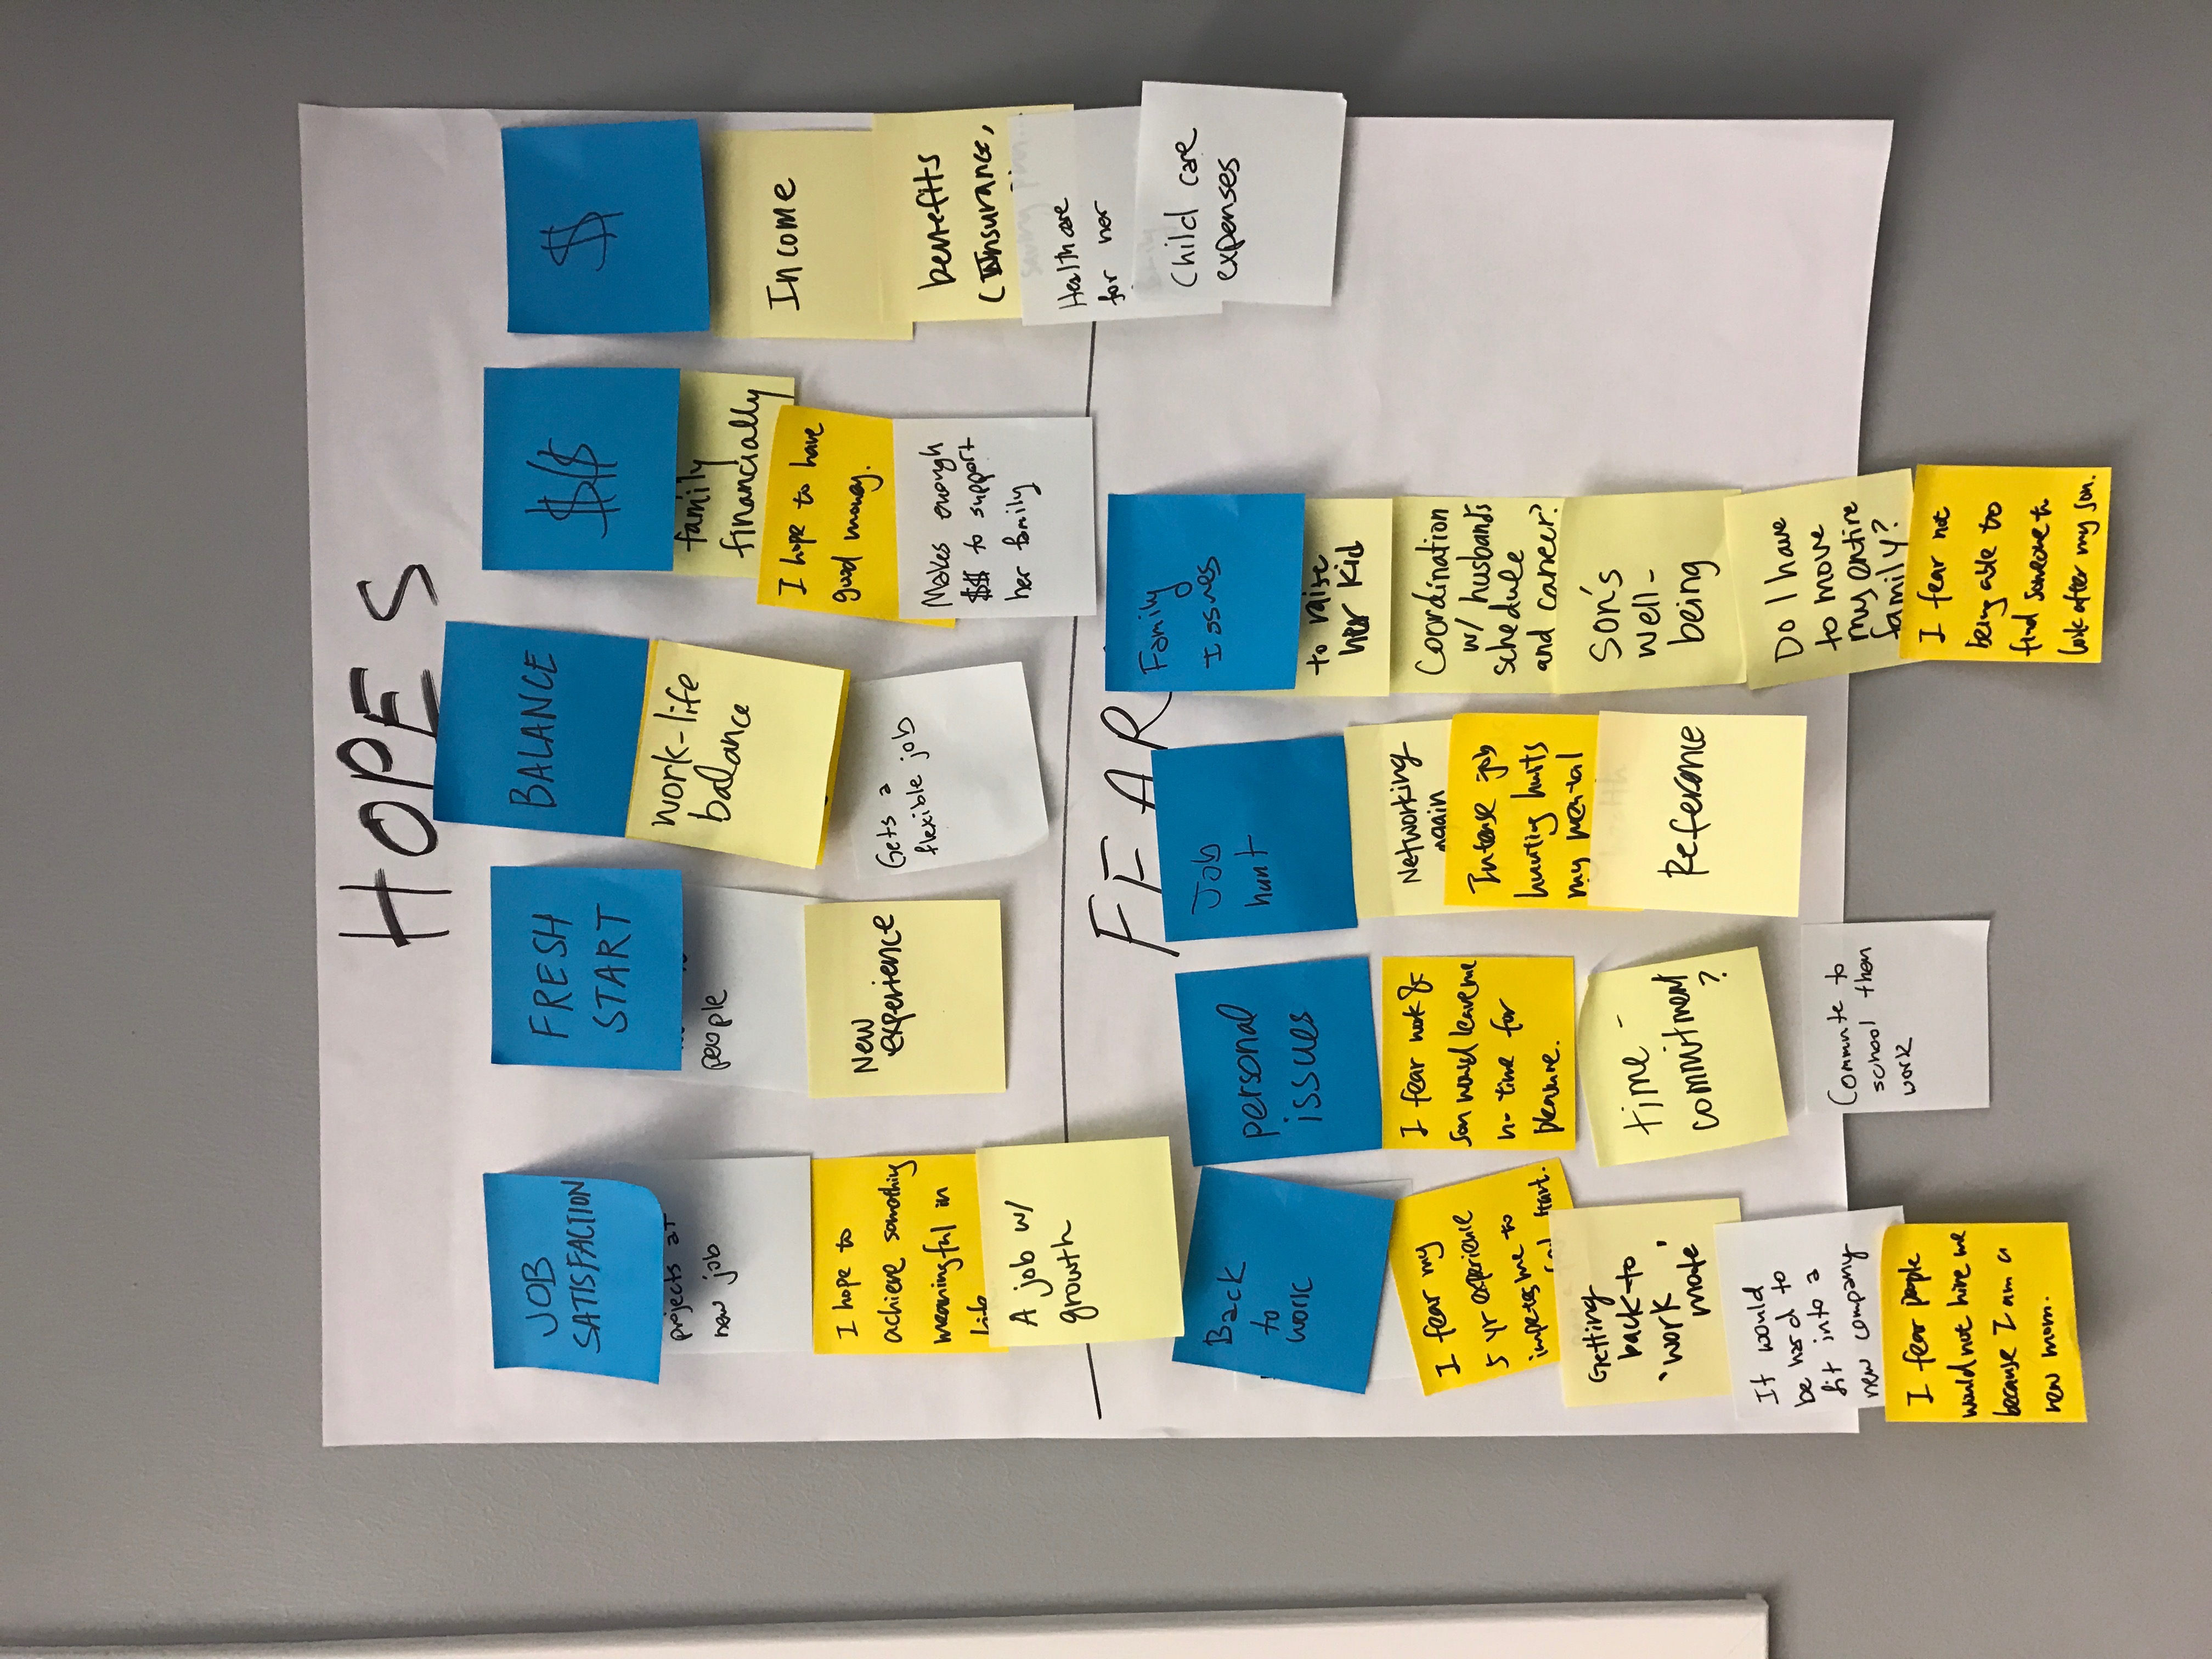 HOPES
JOB
SATISFACTION
projects at
new job
I hope to
achieve something
meaningful in
life
A job w/
growth
FRESH
START
people
New
experience
BALANCE
work-life
balance
Gets a
flexible job
$$
family
financially
I hope to have
good money.
Makes enough
$$ to support
her family
$
Income
benefits
(Insurance,
saving plan...
Healthcare
for her
family
Child care
expenses
FEAR
Back
to
work
I fear my
5 yr experience
impetes me to
start.
Getting
back to
'work
mode'
It would
be hard to
fit into a
new company
I fear people
would not hire me
because I am a
new mom.
personal
issues
I fear work &
son would leave me
no time for
pleasure.
time-
commitment
?
Commute to
school then
work
Job
hunt
Networking
again
Intense job
hunting hurts
my mental
health
Reference
Family
Issues
to raise
her kid
Coordination
w/ husband's
schedule
and career?
son's
well-
being
Do I have
to move
my entire
family?
I fear not
being able to
find someone to
look after my son.